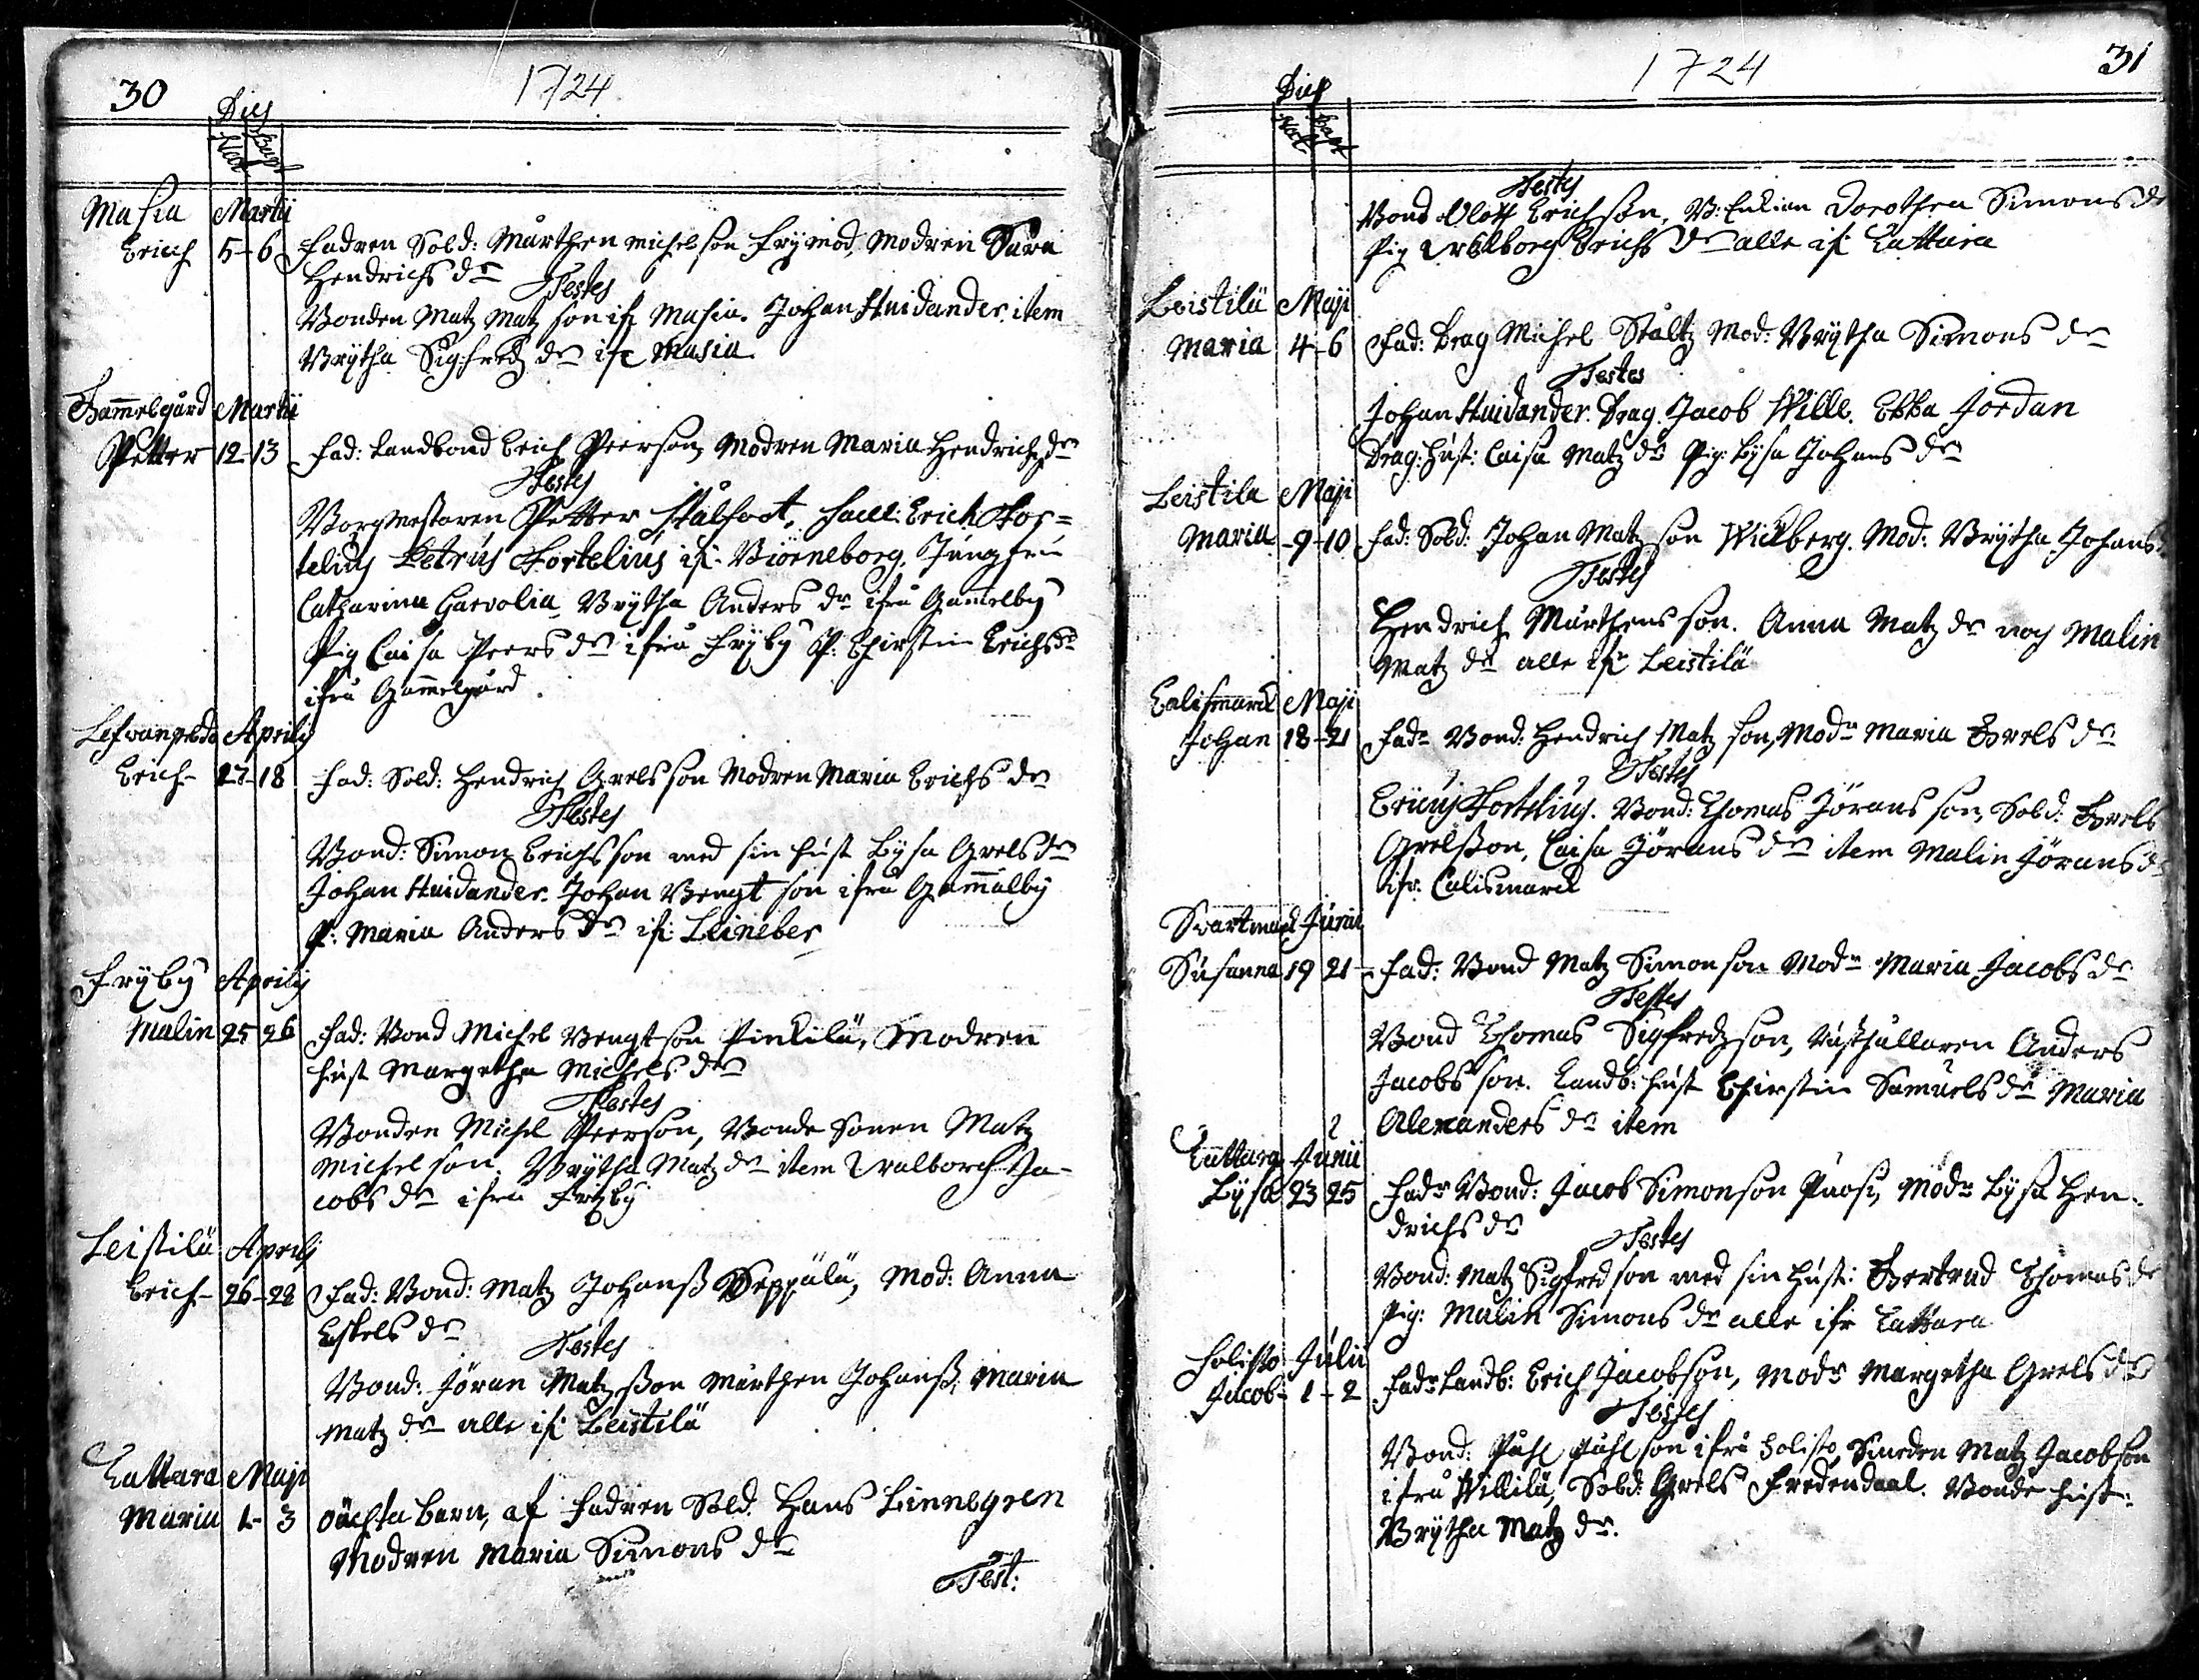 30
1724
Dies
Nat Bapt
Masia Martii
Erich 5-6 Fadren Sold: Mårthen Michelson Frijmod, Modren Sara
Hendrichs dr
Testes
Bonden Matz Matzson ifr Masia. Johan Huidander. item
Brijtha Sigfredz dr ifr Masia
Gam̄elgård Martii
Petter 12-13 Fad: Landbond Erich Peerson, Modren Maria Hendrichs dr
Testes
Borgmestaren Petter Stålfoot, Erich For=
telius Petrus Fortelius if: Biörneborg, Jungfru
Catharina Brijtha Anders dr ifrå Gam̄elby
Pig Caisa Peers dr ifrå Frijby P: Chirstin Erichs dr
ifrå Gam̄elgård.
Aprilij
Erich- 17-18 Fad: Sold: Hendrich Grelsson Modren Maria Erichs dr
Testes
Bond: Simon Erichsson med sin hust Lijsa Grels dr
Johan Huidander. Johan Bengtson ifrå Gam̄alby
P: Maria Anders dr if: Leineber
Frijby Aprilij
Malin 25 26 Fad: Bond Michel Bengtson Pinkilä, Modren
hust Margetha Michels dr
Testes
Bonden Michel Peerson, Bonde Sonen Matz
Michelson. Brijtha Matz dr item Walborch Ja-
cobs dr ifrå Frijby
Leistilä Aprilij
Erich- 26-28 Fad: Bond: Matz Johanß Seppälä, Mod: Anna
Eskels dr
Testes
Bond: Jöran Matzsson Mårthen Johanß. Maria
Matz dr alle if: Leistilä
Lattara Maji
Maria 1- 3 oächta barn, af Fadren Sold. Hans Linnegren
Modren Maria Simons dr
Test:
31
1724
Dies
Nat Bapt
Testes
Bond Oloff Erichson, B: Enkian Dorothea Simons dr
Pig Walborg Erichs dr alle if: Lattara
Leistilä Maji
Maria 4-6 Fad: Drag Michel Stältz Mod: Brijtha Simons dr
Testes
Johan Huidander. Drag. Jacob Wille. Ebba Jordan
Drag: hust: Caisa Matz dr Pig: Lijsa Johans dr
Leistila Maji
Maria -9-10 Fad: Sold: Johan Matzson Wickberg. Mod: Brijtha Johans
Testes
Hendrich Mårthensson. Anna Matz dr och Malin
Matz dr alle ifr Leistilä
Calismarck Maji
Johan 18-21 Fadr Bond: Hendrich Matzson, Modr Maria Grels dr
Testes
Ericus Fortelius. Bond: Thomas Jöransson, Sold: Grels
Grelsson, Caisa Jörans dr item Malin Jörans dr
ifr: Calismarck
Svartmarck Junii
Susanna 19 21 Fad: Bond Matz Simonson Modr Maria Jacobs dr
Testes
Bond Thomas Sigfredzson, Rusthållaren Anders
Jacobsson. Landb: hust Chirstin Samuels dr Maria
Alexanders dr item
Lattara Junii
Lijsa 23 25 Fadr Bond: Jacob Simonson Paosi, Modr Lijsa Hen-
drichs dr
Testes
Bond: Matz Sigfredson med sin hust: Gertrud Thomas dr
Pig: Malin Simons dr alle ifr Lattara
Holisto Julii
Jacob- 1-2 Fadr Landb: Erich Jacobson, Modr Margetha Grels dr
Testes
Bond: Påhl Påhlson ifrå Holisto, Smeden Matz Jacobson
ifrå Willilä, Sold: Grels Fredendaal. Bonde hust:
Brijtha Matz dr.